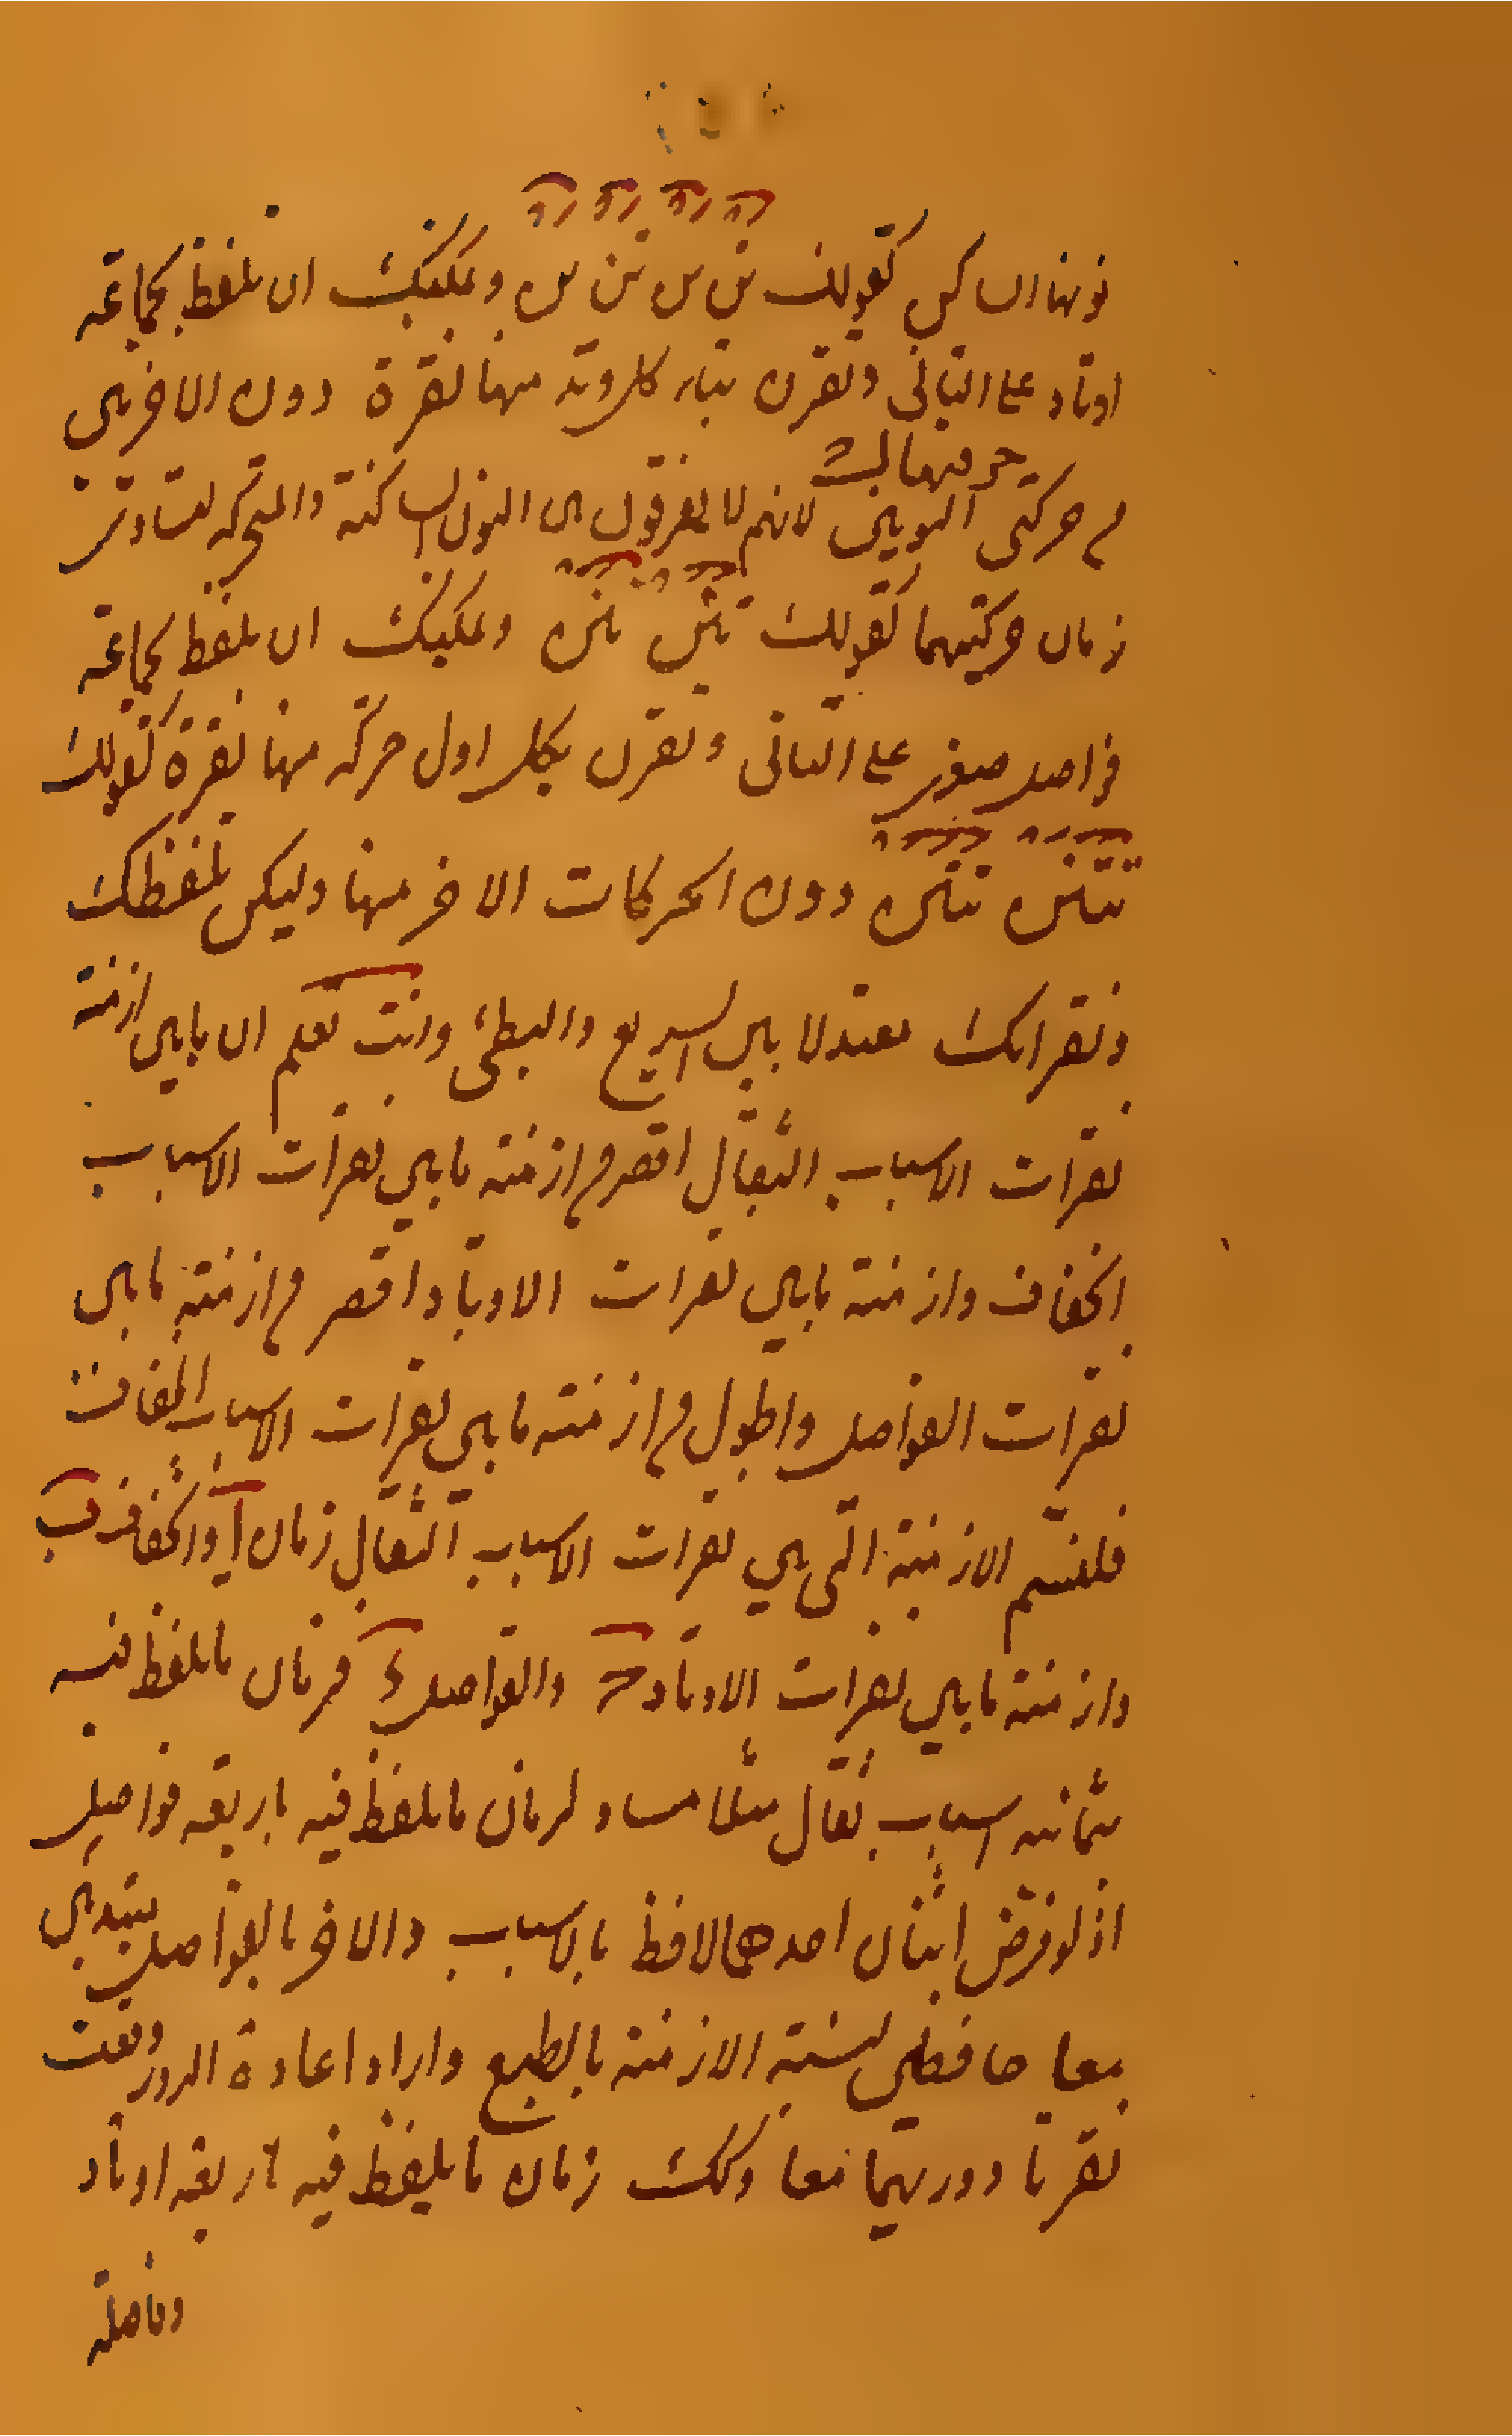 نونها ساكن كقولك تن تن تن تن ويمكنك ان تلفظ بجماعة
اوتاد على التتالى وتقرن بتاء كل وتد منها نقرة دون الاخريين
حرفيهما
من حركتى النونين لانهم لا يفرقون بين النون الساكنة والمتحركة لتساوى
زمان حركتيهما كقولك تنن تنن ويمكنك ان تلفظ بجماعة
فواصل صغرى على التتالى وتقرن بكل اول حركة منها نقرة كقولك
تتنن تتنن دون الحركات الاخر منها وليكن تلفظك
ونقراتك معتدلا بين السريع والبطئ وانت تعلم ان ما بين ازمنة
نقرات الاسباب الثقال اقصر من ازمنة ما بين نقرات الاسباب
الخفاف وازمنة ما بين نقرات الاوتاد اقصر من ازمنة ما بين
نقرات الفواصل واطول من ازمنة ما بين نقرات الاسباب الخفاف
فلنسم الازمنة التى بين نقرات الاسباب الثقال زمان آ والخفاف ب
وازمنة ما بين نقرات الاوتاد ج والفواصل د فزمان ما تلفظ فيه
بثمانية اسباب ثقال مثلا مساو لزمان ما تلفظ فيه باربعة فواصل
اذ لو فرض اثنان احدهما لافظ بالاسباب والاخر بالفواصل مبتدئين
معا حافظين لنسبة الازمنة بالطبع واراد اعادة الدور وقعت
نقرتا دوريهما معا وكك زمان ما يلفظ فيه باربعة اوتاد
وفاصلة